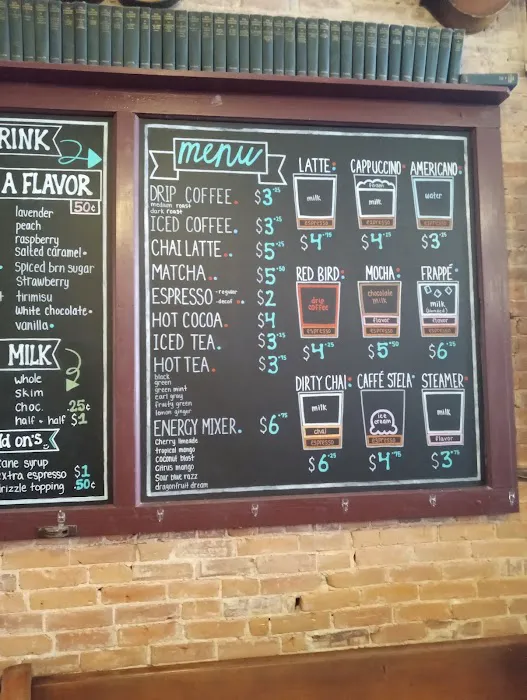 RINK
A FLAVOR
50¢
lavender
peach
raspberry
salted caramel
spiced brn sugar
strawberry
tirimisu
white chocolate
vanilla
MILK
whole
skim
choc. .25¢
half + half $1
d on's
ane syrup
xtra espresso $1
rizzle topping .50¢
menu
DRIP COFFEE. $3.25
medium roast
dark roast
ICED COFFEE. $3.25
CHAI LATTE.. $5.25
MATCHA.. $5.50
ESPRESSO -regular -decaf $2
HOT COCOA. $4
ICED TEA. $3.25
HOT TEA. $3.75
black
green
green mint
earl gray
fruity green
lemon ginger
ENERGY MIXER. $6.75
cherry limeade
tropical mango
coconut blast
citrus mango
sour blue razz
dragonfruit dream
LATTE
milk
espresso
$4.75
CAPPUCCINO
foam
milk
espresso
$4.25
AMERICANO
water
espresso
$3.25
RED BIRD
drip coffee
espresso
$4.25
MOCHA
chocolate milk
flavor
espresso
$5.50
FRAPPÉ
milk
(blended)
flavor
espresso
$6.25
DIRTY CHAI
milk
chai
espresso
$6.25
CAFFÉ STELA
ice cream
espresso
$4.75
STEAMER
milk
flavor
$3.75